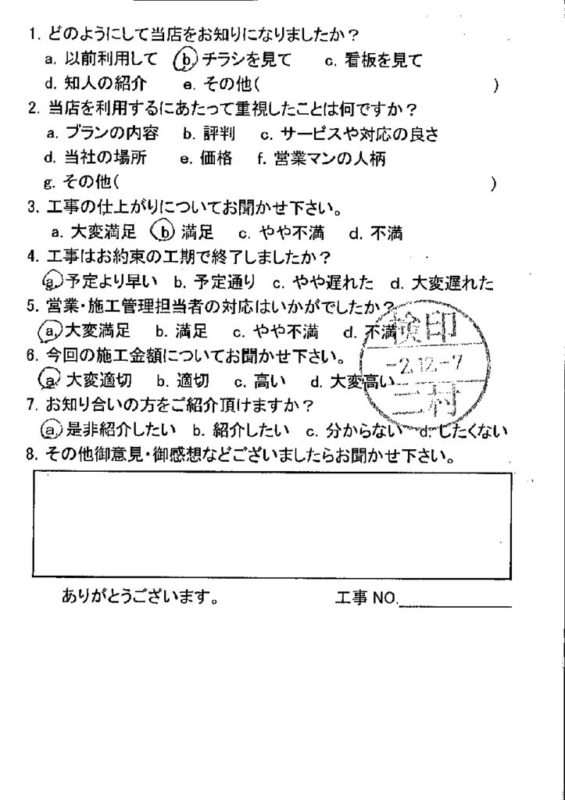 1. どのようにして当店をお知りになりましたか?
a. 以前利用して b. チラシを見て c. 看板を見て
d. 知人の紹介 e. その他( )
2. 当店を利用するにあたって重視したことは何ですか?
a. プランの内容 b. 評判 c. サービスや対応の良さ
d. 当社の場所 e. 価格 f. 営業マンの人柄
g. その他( )
3. 工事の仕上がりについてお聞かせ下さい。
a. 大変満足 b. 満足 c. やや不満 d. 不満
4. 工事はお約束の工期で終了しましたか?
a. 予定より早い b. 予定通り c. やや遅れた d. 大変遅れた
5. 営業・施工管理担当者の対応はいかがでしたか?
a. 大変満足 b. 満足 c. やや不満 d. 不満
検印
-2.12.-7
二村
6. 今回の施工金額についてお聞かせ下さい。
a. 大変適切 b. 適切 c. 高い d. 大変高い
7. お知り合いの方をご紹介頂けますか?
a. 是非紹介したい b. 紹介したい c. 分からない d. したくない
8. その他御意見・御感想などございましたらお聞かせ下さい。
ありがとうございます。 工事 NO.